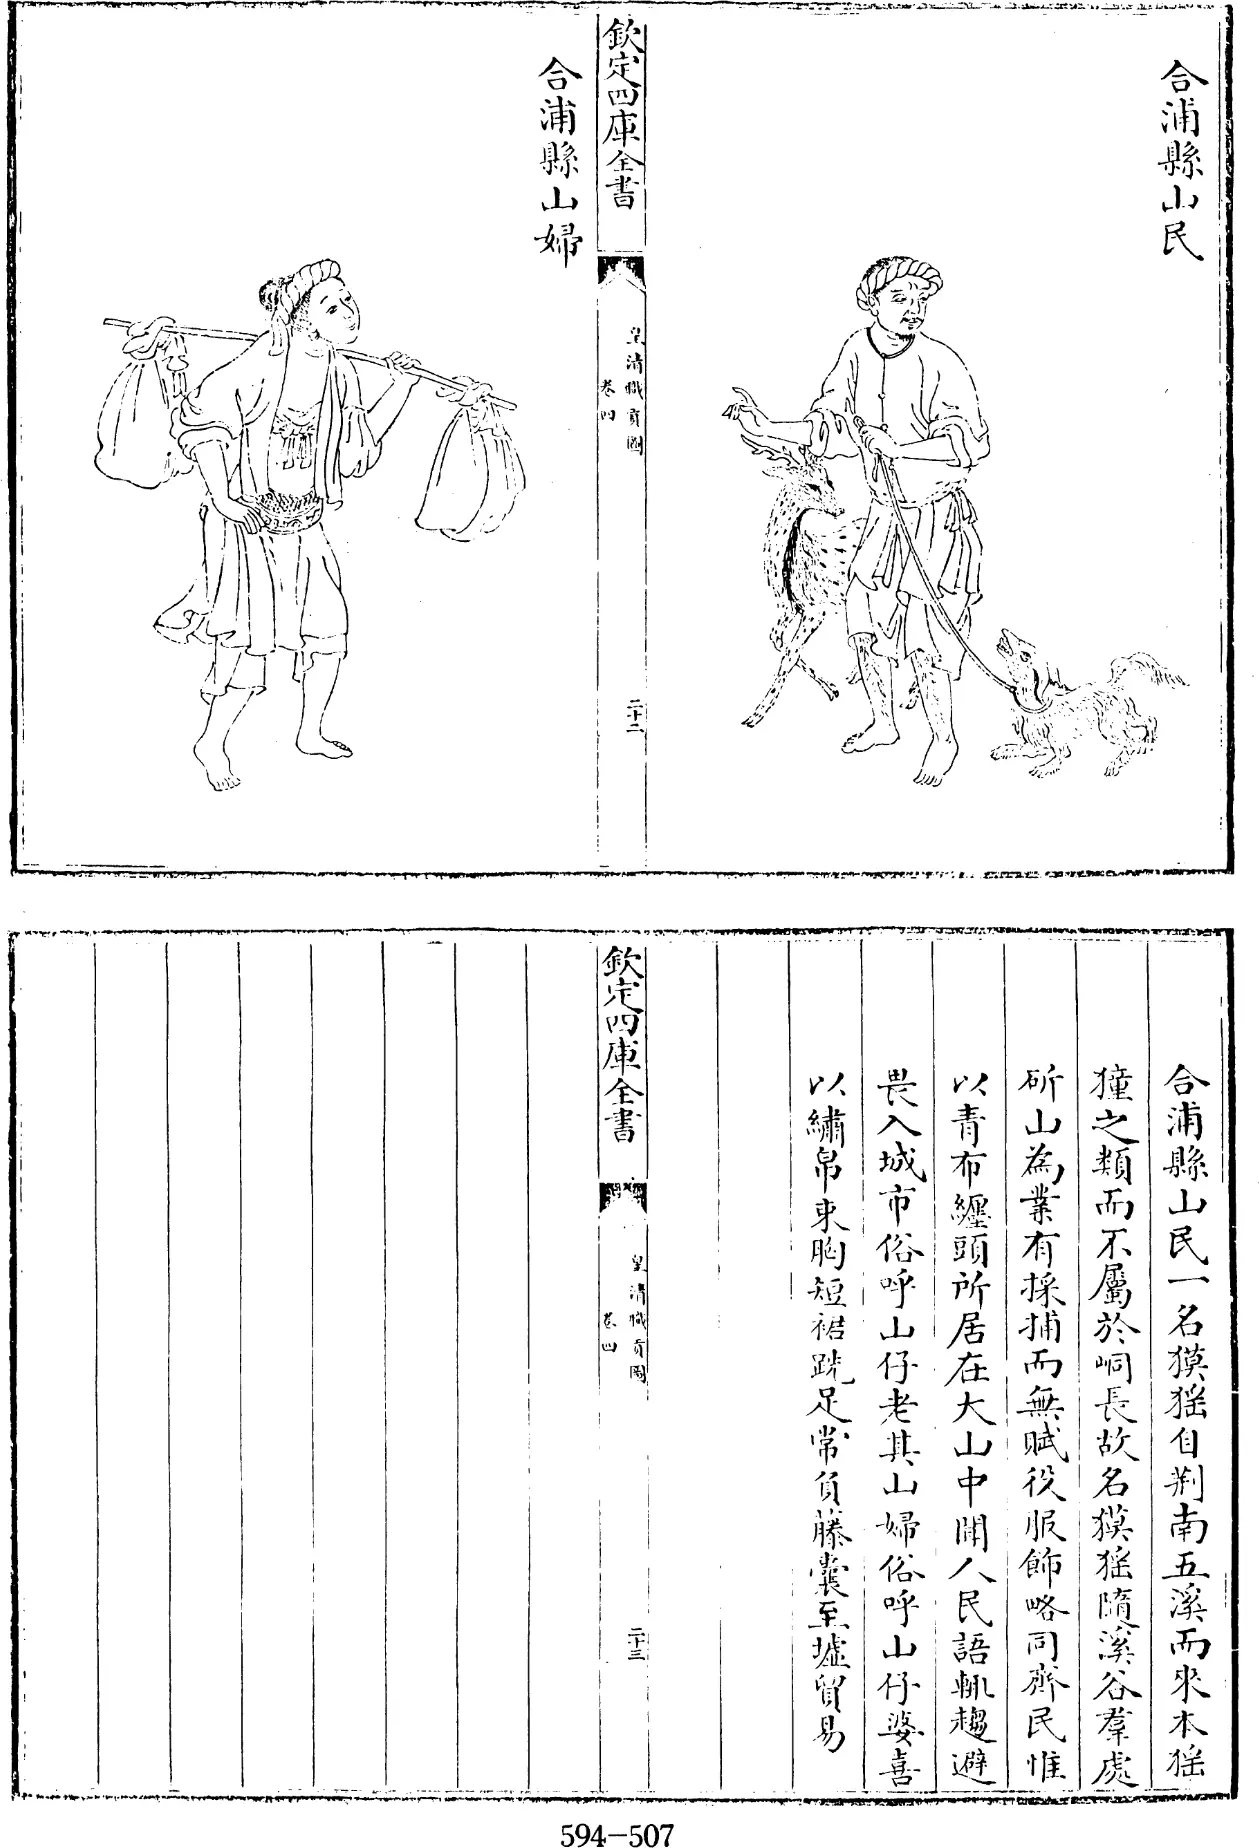 合浦縣山民
欽定四庫全書
皇清職貢圖
卷四
二十二
合浦縣山婦
合浦縣山民一名獏猺自荆南五溪而來本猺
獞之類而不屬於峒長故名獏猺隨溪谷羣處
斫山為業有採捕而無賦役服飾略同齊民惟
以青布纏頭所居在大山中聞人民語輒趨避
畏入城市俗呼山仔老其山婦俗呼山仔婆喜
以繡帛束胸短裙跣足常負藤囊至墟貿易
欽定四庫全書
皇清職貢圖
卷四
二十三
594-507